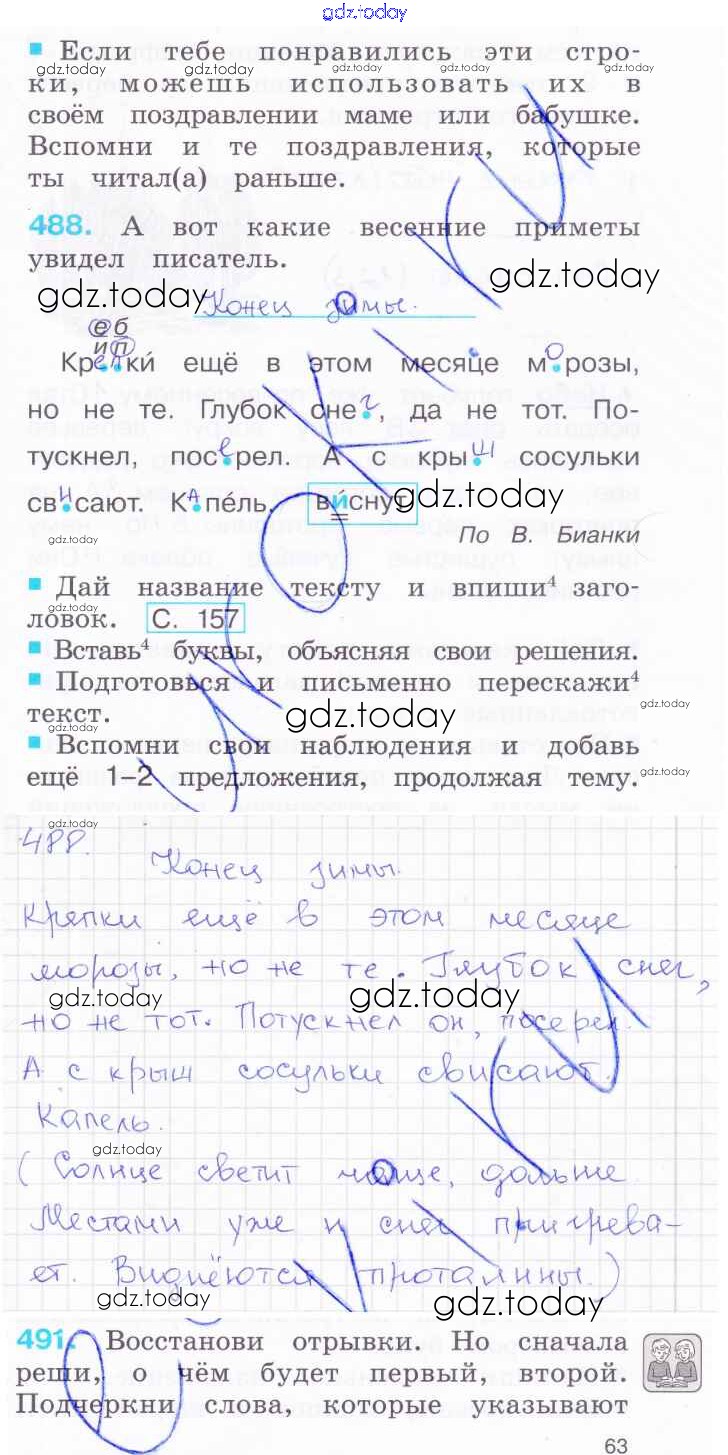 gdz.today
Если тебе понравились эти стро-
gdz.today gdz.today gdz.today gdz.today gdz.today
ки, можешь использовать их в
своём поздравлении маме или бабушке.
Вспомни и те поздравления, которые
ты читал(а) раньше.
gdz.today
488. А вот какие весенние приметы
увидел писатель.
gdz.today gdz.today
Конец зимы.
е б
и п
Крепки́ ещё в этом месяце морозы,
но не те. Глубок снег, да не тот. По-
тускнел, посерел. А с крыш сосульки
свисают. Капе́ль. ви́снут
gdz.today
По В. Бианки
Дай название тексту и впиши⁴ заго-
gdz.today
ловок. С. 157
Вставь⁴ буквы, объясняя свои решения.
gdz.today
Подготовься и письменно перескажи⁴
текст.
gdz.today gdz.today
Вспомни свои наблюдения и добавь
gdz.today
ещё 1–2 предложения, продолжая тему.
gdz.today
488.
Конец зимы.
Крепки ещё в этом месяце
морозы, но не те. Глубок снег,
gdz.today gdz.today
но не тот. Потускнел он, посерел.
А с крыш сосульки свисают.
Капель.
gdz.today
(Солнце светит чаще, дольше.
Местами уже и снег пригрева-
ет. Виднеются проталины.)
gdz.today gdz.today
491. Восстанови отрывки. Но сначала
реши, о чём будет первый, второй.
Подчеркни слова, которые указывают
63